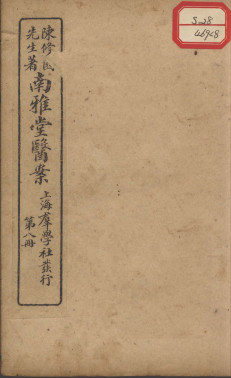 陳修園
先生著
南雅堂醫案
上海羣學社發行
第八冊
S28
4648